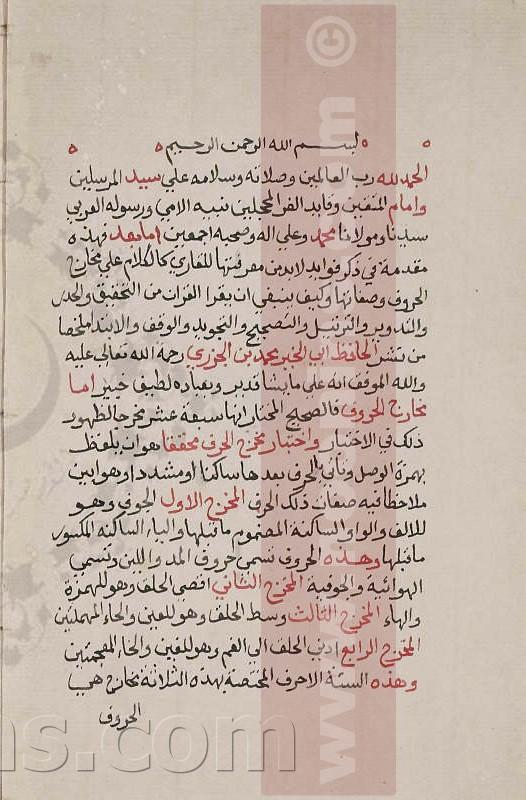 بسم الله الرحمن الرحيم
الحمد لله رب العالمين وصلاته وسلامه علي سيد المرسلين
وامام المتقين وقايد الغر المحجلين نبيه الامي ورسوله العربي
سيدنا ومولانا محمد وعلي اله وصحبه اجمعين اما بعد فهذه
مقدمة في ذكر فوايد لابد من معرفتها للقاري كالكلام علي مخارج
الحروف وصفاتها وكيف ينبغي ان يقرا القران من التحقيق والحدر
والتدوير والترتيل والتصحيح والتجويد والوقف والابتدا ملخصا
من نشر الحافظ ابي الخير محمد بن الجزري رحمه الله تعالي عليه
والله الموفق انه علي ما يشا قدير وبعباده لطيف خبير اما
مخارج الحروف فالصحيح المختار انها سبعة عشر مخرجا لظهور
ذلك في الاختبار واختبار مخرج الحرف محققا هو ان يلفظ
بهمزة الوصل وياتي بالحرف بعدها ساكنا او مشددا وهو ابين
ملاحظا فيه صفات ذلك الحرف المخرج الاول الجوف وهو
للالف والواو الساكنة المضموم ما قبلها واليا الساكنه المكسور
ما قبلها وهذه الحروف تسمي حروف المد واللين وتسمي
الهوائية والجوفية المخرج الثاني اقصي الحلق وهو للهمزة
والهاء المخرج الثالث وسط الحلق وهو للعين والحاء المهملتين
المخرج الرابع ادني الحلق الي الفم وهو للغين والخاء المعجمتين
وهذه الستة الاحرف المختصة بهذه الثلاثة مخارج هي
الحروف
© www.
ns.com